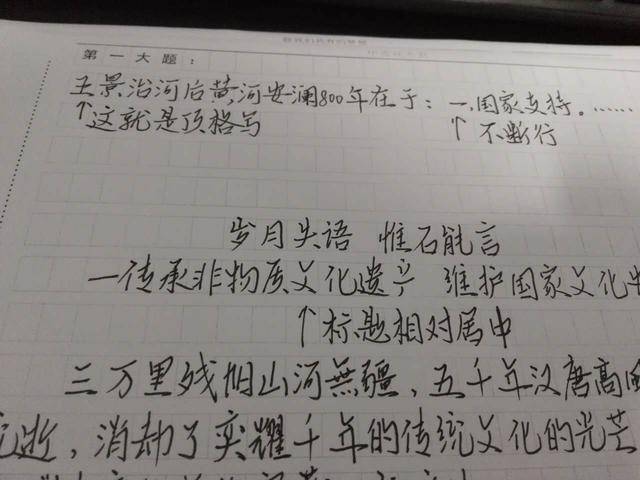 第一大题：
王景治河后黄河安澜800年在于：一.国家支持。……
↑这就是顶格写
↑不断行
岁月失语 惟石能言
一传承非物质文化遗产 维护国家文化
↑标题相对居中
三万里残旧山河無疆，五千年汉唐高
逝，消却了奕耀千年的传统文化的光芒